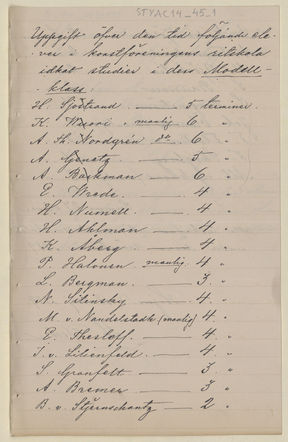 STYAC14_45_1
Uppgift öfver den tid följande ele-
ver i konstföreningens ritskola
idkat studier i dess Modell-
klass:
H. Sjöstrand — 5 terminer.
K. mantlig 6 "
A. Th. Nordgrén do 6 "
A. — 5 "
A. Backman — 6 "
E. Wrede — 4 "
H. Numell — 4 "
H. Ahlman — 4 "
K. Åberg — 4 "
P. Halonen mantlig. 4 "
L. Bergman — 3 "
N. Silinsky — 4 "
M. v. Nandelstadh (mantlig) 4 "
E. Thesleff — 4 "
I. v. Lilienfeld — 4 "
S. Granfelt — 3 "
A. Bremer — 3 "
B. v. Stjernschantz — 2 "